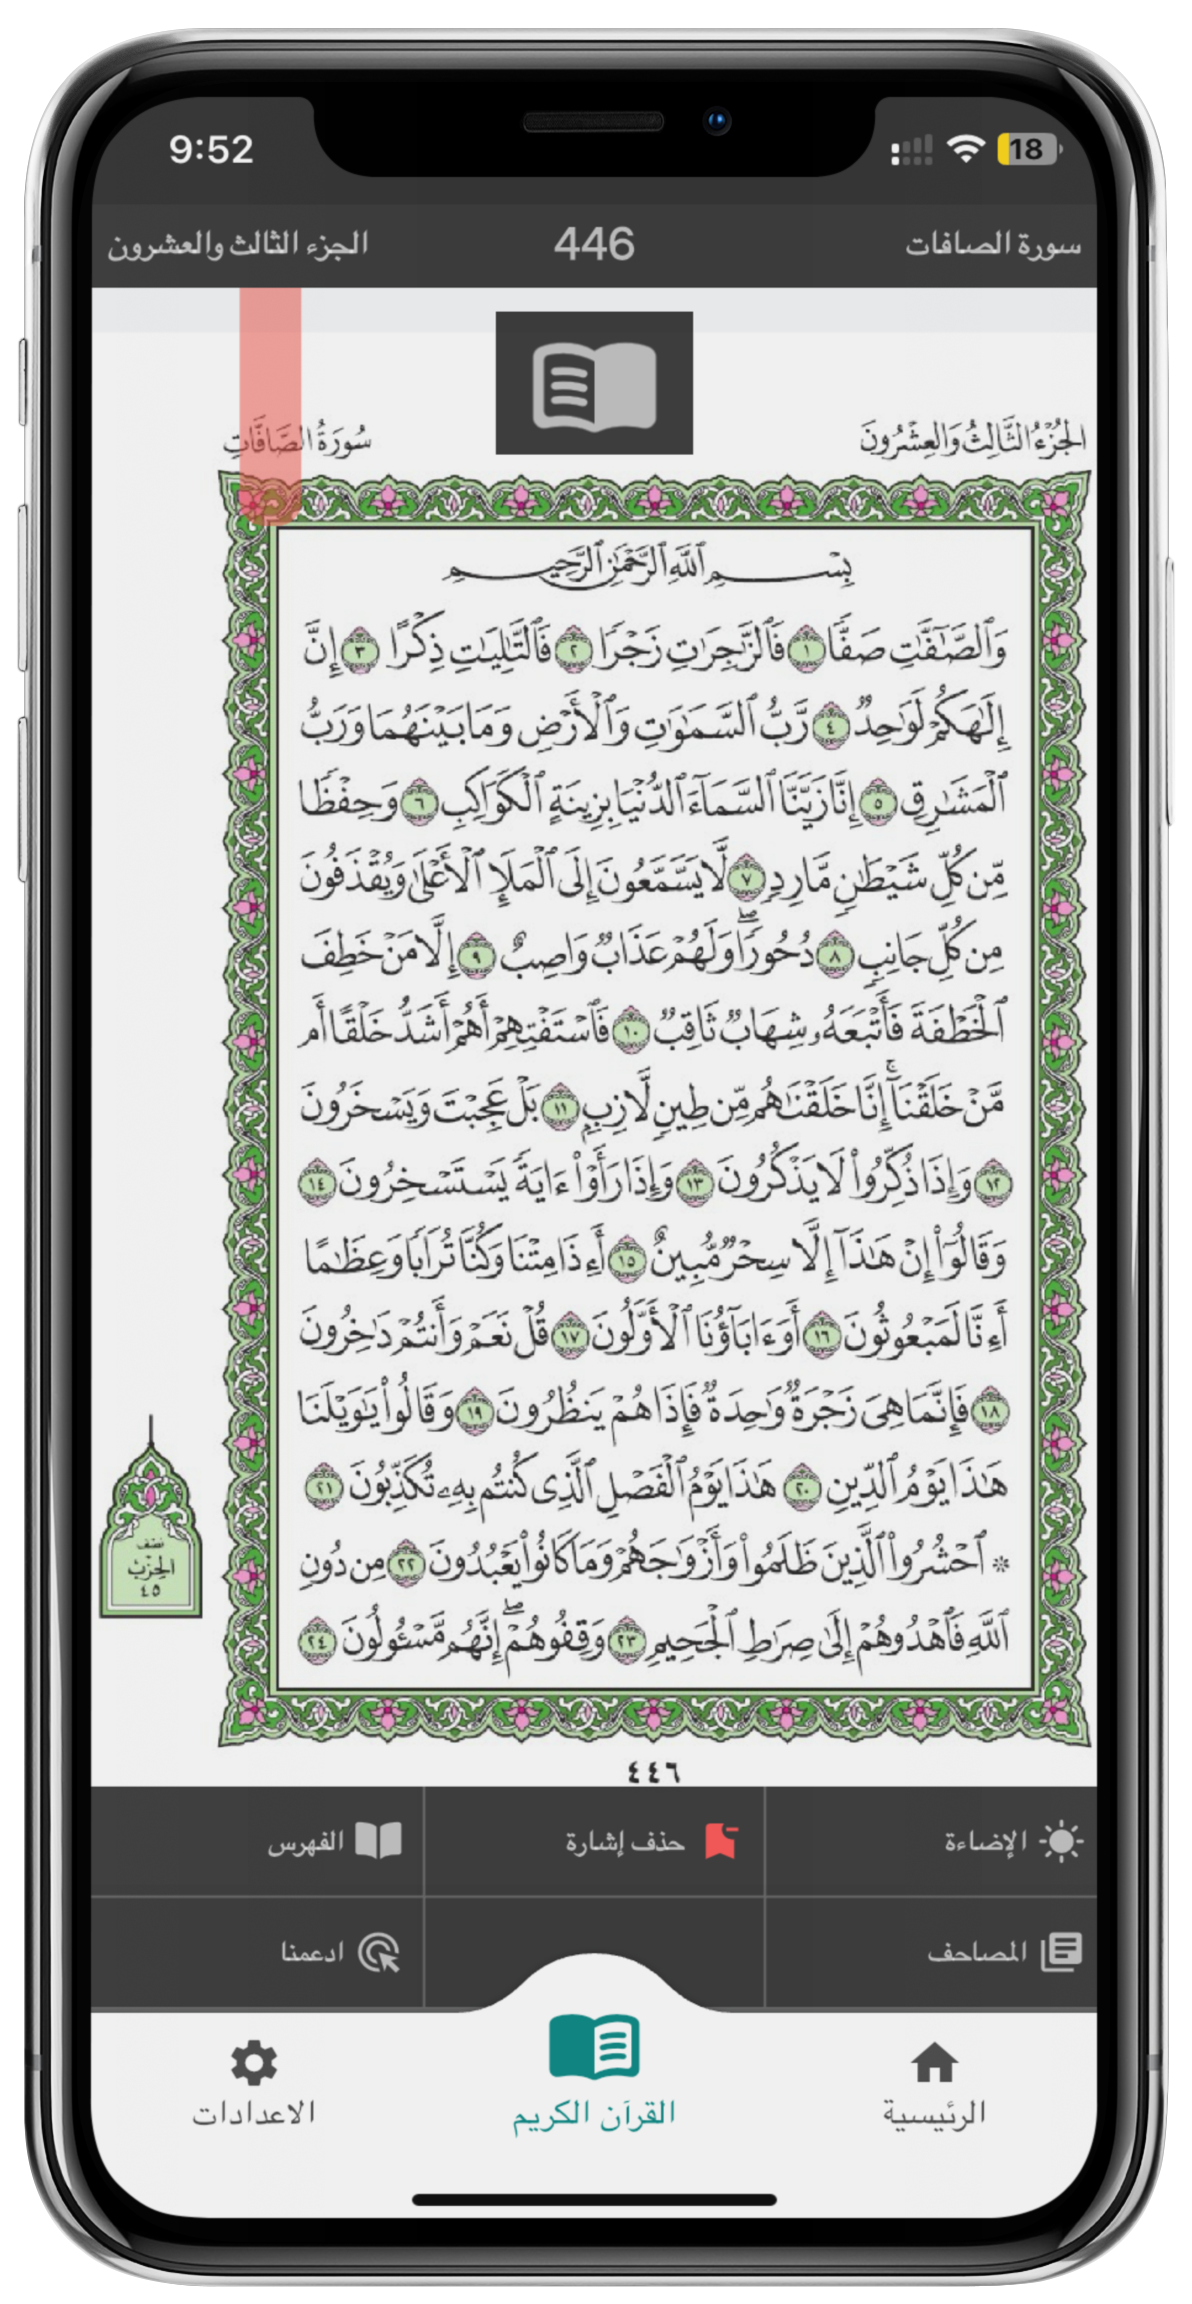 9:52
18
سورة الصافات
446
الجزء الثالث والعشرون
الجُزْءُ الثَّالِثُ وَالعِشْرُونَ
سُورَةُ الصَّافَّاتِ
بِسْمِ ٱللَّهِ ٱلرَّحْمَٰنِ ٱلرَّحِيمِ
وَٱلصَّٰٓفَّٰتِ صَفًّا ١ فَٱلزَّٰجِرَٰتِ زَجْرًا ٢ فَٱلتَّٰلِيَٰتِ ذِكْرًا ٣ إِنَّ
إِلَٰهَكُمْ لَوَٰحِدٌ ٤ رَّبُّ ٱلسَّمَٰوَٰتِ وَٱلْأَرْضِ وَمَا بَيْنَهُمَا وَرَبُّ
ٱلْمَشَٰرِقِ ٥ إِنَّا زَيَّنَّا ٱلسَّمَآءَ ٱلدُّنْيَا بِزِينَةٍ ٱلْكَوَاكِبِ ٦ وَحِفْظًا
مِّن كُلِّ شَيْطَٰنٍ مَّارِدٍ ٧ لَّا يَسَّمَّعُونَ إِلَى ٱلْمَلَإِ ٱلْأَعْلَىٰ وَيُقْذَفُونَ
مِن كُلِّ جَانِبٍ ٨ دُحُورًا ۖ وَلَهُمْ عَذَابٌ وَاصِبٌ ٩ إِلَّا مَنْ خَطِفَ
ٱلْخَطْفَةَ فَأَتْبَعَهُۥ شِهَابٌ ثَاقِبٌ ١٠ فَٱسْتَفْتِهِمْ أَهُمْ أَشَدُّ خَلْقًا أَم
مَّنْ خَلَقْنَآ ۚ إِنَّا خَلَقْنَٰهُم مِّن طِينٍ لَّازِبٍ ١١ بَلْ عَجِبْتَ وَيَسْخَرُونَ
١٢ وَإِذَا ذُكِّرُوا۟ لَا يَذْكُرُونَ ١٣ وَإِذَا رَأَوْا۟ ءَايَةً يَسْتَسْخِرُونَ ١٤
وَقَالُوٓا۟ إِنْ هَٰذَآ إِلَّا سِحْرٌ مُّبِينٌ ١٥ أَءِذَا مِتْنَا وَكُنَّا تُرَابًا وَعِظَٰمًا
أَءِنَّا لَمَبْعُوثُونَ ١٦ أَوَءَابَآؤُنَا ٱلْأَوَّلُونَ ١٧ قُلْ نَعَمْ وَأَنتُمْ دَٰخِرُونَ
١٨ فَإِنَّمَا هِىَ زَجْرَةٌ وَٰحِدَةٌ فَإِذَا هُمْ يَنظُرُونَ ١٩ وَقَالُوا۟ يَٰوَيْلَنَا
هَٰذَا يَوْمُ ٱلدِّينِ ٢٠ هَٰذَا يَوْمُ ٱلْفَصْلِ ٱلَّذِى كُنتُم بِهِۦ تُكَذِّبُونَ ٢١
* ٱحْشُرُوا۟ ٱلَّذِينَ ظَلَمُوا۟ وَأَزْوَٰجَهُمْ وَمَا كَانُوا۟ يَعْبُدُونَ ٢٢ مِن دُونِ
ٱللَّهِ فَٱهْدُوهُمْ إِلَىٰ صِرَٰطِ ٱلْجَحِيمِ ٢٣ وَقِفُوهُمْ ۖ إِنَّهُم مَّسْـُٔولُونَ ٢٤
نصف
الحزب
٤٥
٤٤٦
الإضاءة
حذف إشارة
الفهرس
المصاحف
ادعمنا
الرئيسية
القرآن الكريم
الاعدادات